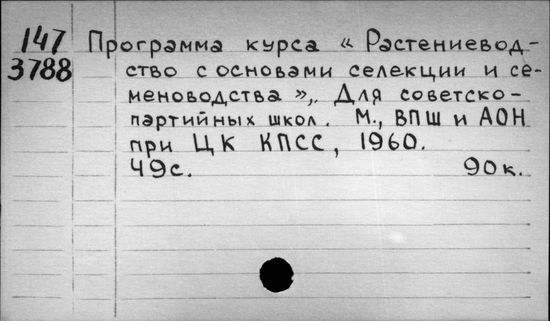 147 Программа курса « Растениевод-
3788 ство с основами селекции и се-
меноводства »,. Для советско-
партийных школ. М., ВПШ и АОН
при ЦК КПСС, 1960.
49с. 90к.